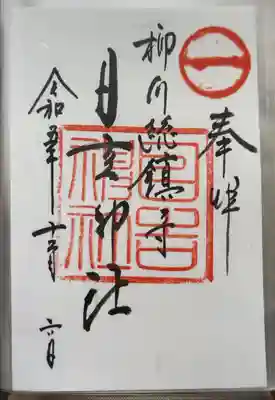 奉拝
柳川総鎮守
日吉神社
日吉神社
令和五年十一月六日